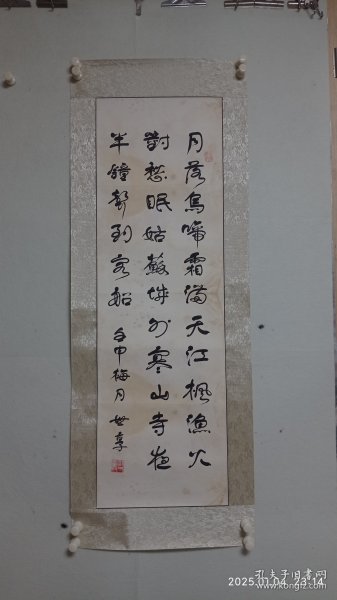 月落烏啼霜満天江楓漁火
對愁眠姑蘇城外寒山寺夜
半鐘聲到客船 壬申梅月 世享
2025.01.04 23:14
孔夫子旧书网
www.kongfz.com